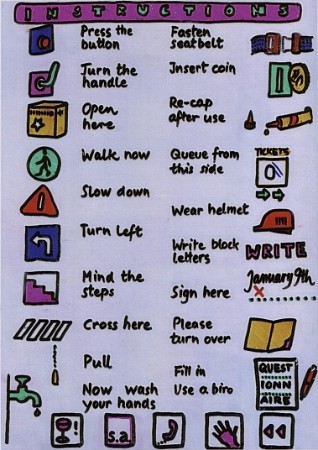 INSTRUCTIONS
Press the
button
Turn the
handle
Open
here
Walk now
Slow down
Turn Left
Mind the
steps
Cross here
Pull
Now wash
your hands
Fasten
seatbelt
Insert coin
Re-cap
after use
Queue from
this side
TICKETS
Wear helmet
Write block
letters
WRITE
Sign here
January 9th
X
Please
turn over
Fill in
Use a biro
QUEST
IONN
AIRE
s.a.